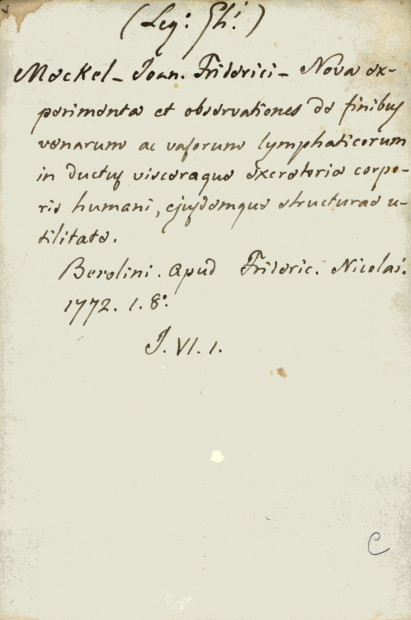 (Leg: Gh:)
Meckel - Joan. Friderici - Nova ex-
perimenta et observationes de finibus
venarum ac vasorum lymphaticorum
in ductus visceraque excretoria corpo-
ris humani, ejusdemque structurae u-
tilitate.
Berolini. apud Frideric. Nicolai.
1772. 1. 8°.
J. VI. 1.
C